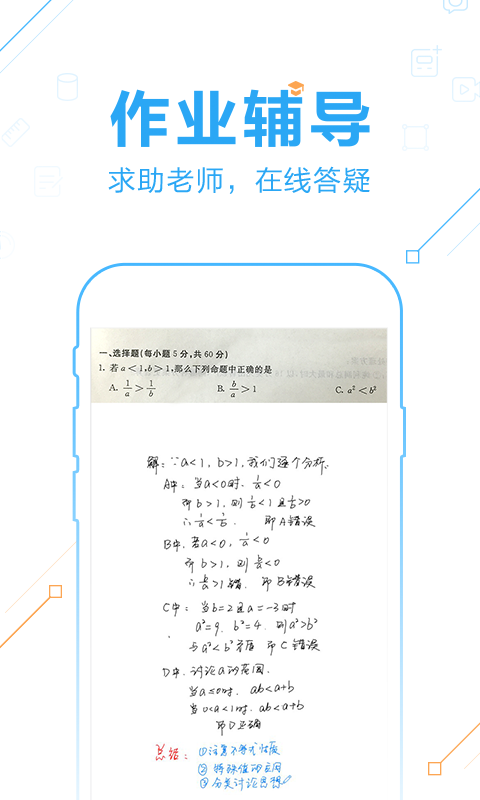 作业辅导
求助老师，在线答疑
一、选择题(每小题5分,共60分)
1. 若a<1,b>1,那么下列命题中正确的是
A. 1/a>1/b B. b/a>1 C. a²<b²
解：∵a<1, b>1, 我们逐个分析.
A中：当a<0时. 1/a<0
而b>1, 则1/b<1且1/b>0
∴1/a<1/b. 即A错误
B中. 若a<0, 1/a<0
而b>1, 则b/a<0
∴b/a>1错. 即B错误
C中：当b=2且a=-3时
a²=9. b²=4. 则a²>b²
与a²<b²矛盾 即C错误
D中. 讨论a的范围.
当a≤0时. ab<a+b
当0<a<1时. ab<a+b
即D正确
总结：①注意不等式性质
②特殊值的应用
③分类讨论思想